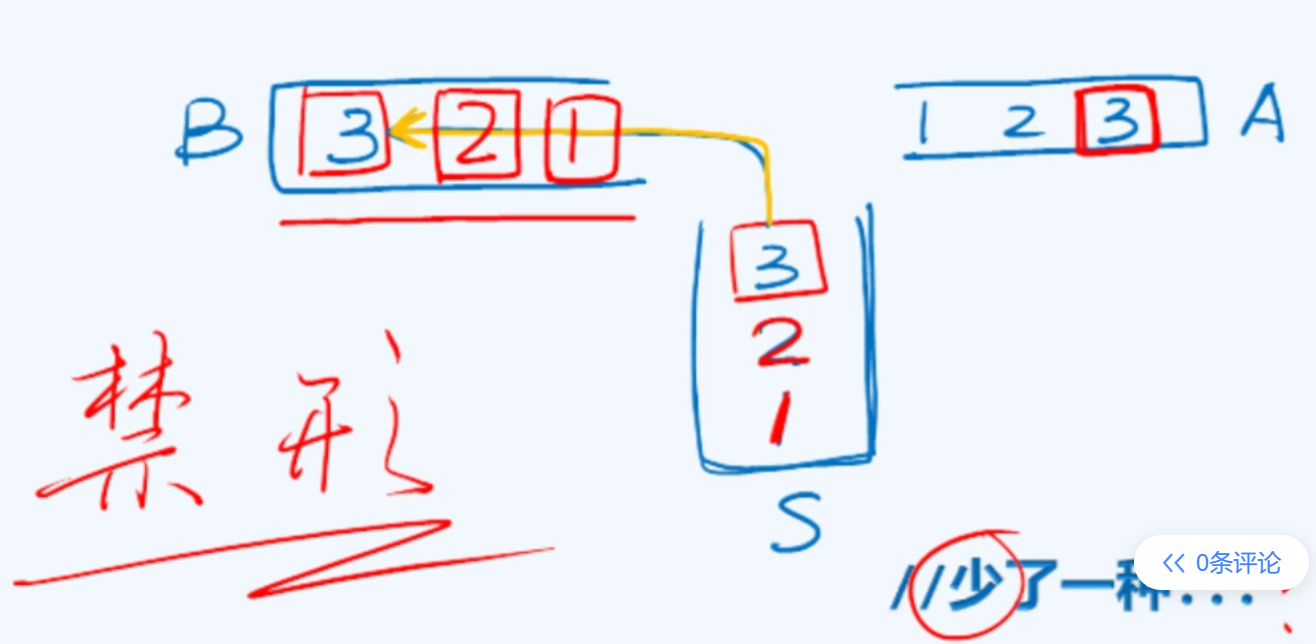 B 3 2 1
1 2 3 A
3
2
1
S
禁形
//少了一种...
0条评论